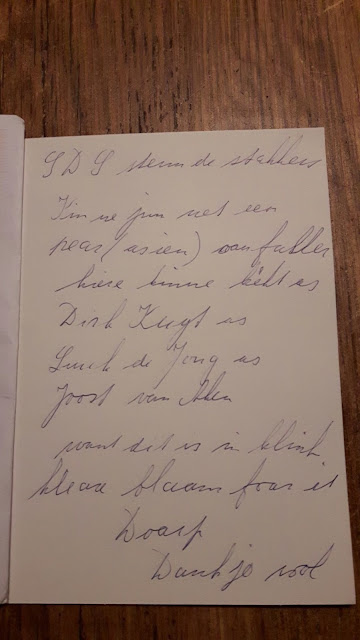 SDS de stakkers
Kin ne jim net een
pear (as ien) oanfaller
hiere as
Dirk Kuyt as
Luuk de Jong as
Joost van Aken
want dit is in klink
kleare blaam foar it
Doarp
Dankje wol